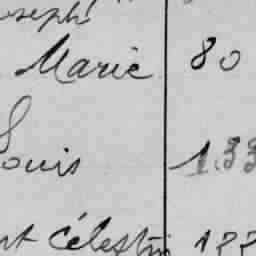 oseph
Marie 80
Louis 133
nt Célestin 177